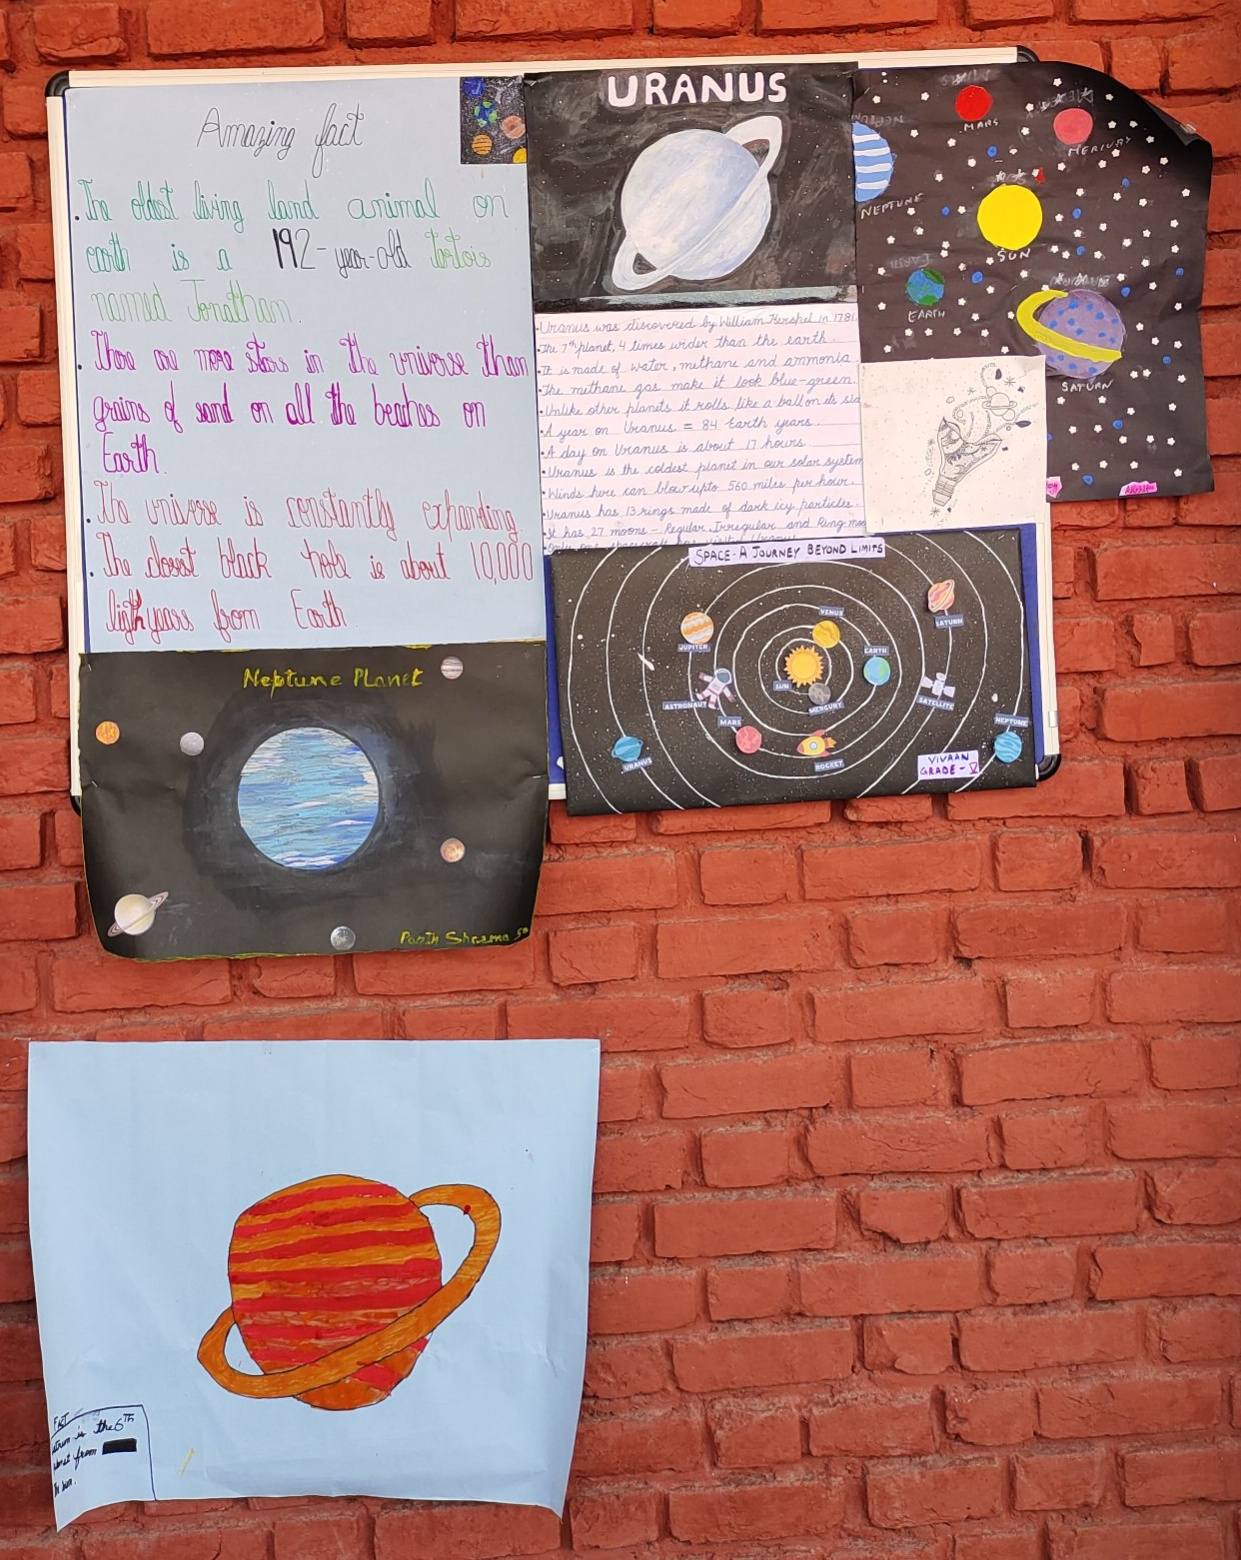 Amazing fact
.The oldest living land animal on
earth is a 192-year-old tortois
named Jonathan.
. There are more stars in the universe than
grains of sand on all the beaches on
Earth.
.The universe is constantly expanding
.The closest black hole is about 10,000
lightyears from Earth
URANUS
•Uranus was discovered by William Hershel in 1781
•The 7th planet, 4 times wider than the earth.
•It is made of water, methane and ammonia.
•The methane gas make it look blue-green.
•Unlike other planets it rolls like a ball on its
•A year on Uranus = 84 Earth years.
•A day on Uranus is about 17 hours
•Uranus is the coldest planet in our solar system
•Winds here can blow upto 560 miles per hour.
•Uranus has 13 rings made of dark icy particles.
•It has 27 moons - Regular, Irregular and Ring
MARS
MERIURY
NEPTUNE
SUN
EARTH
SATURN
SPACE-A JOURNEY BEYOND LIMITS
VENUS
SATURN
JUPITER
EARTH
SUN
ASTRONAUT
MERCURY
SATELLITE
MARS
NEPTUNE
URANUS
ROCKET
VIVAAN
GRADE-V
Neptune Planet
Parth Sharma
FACT
is the 6TH
from